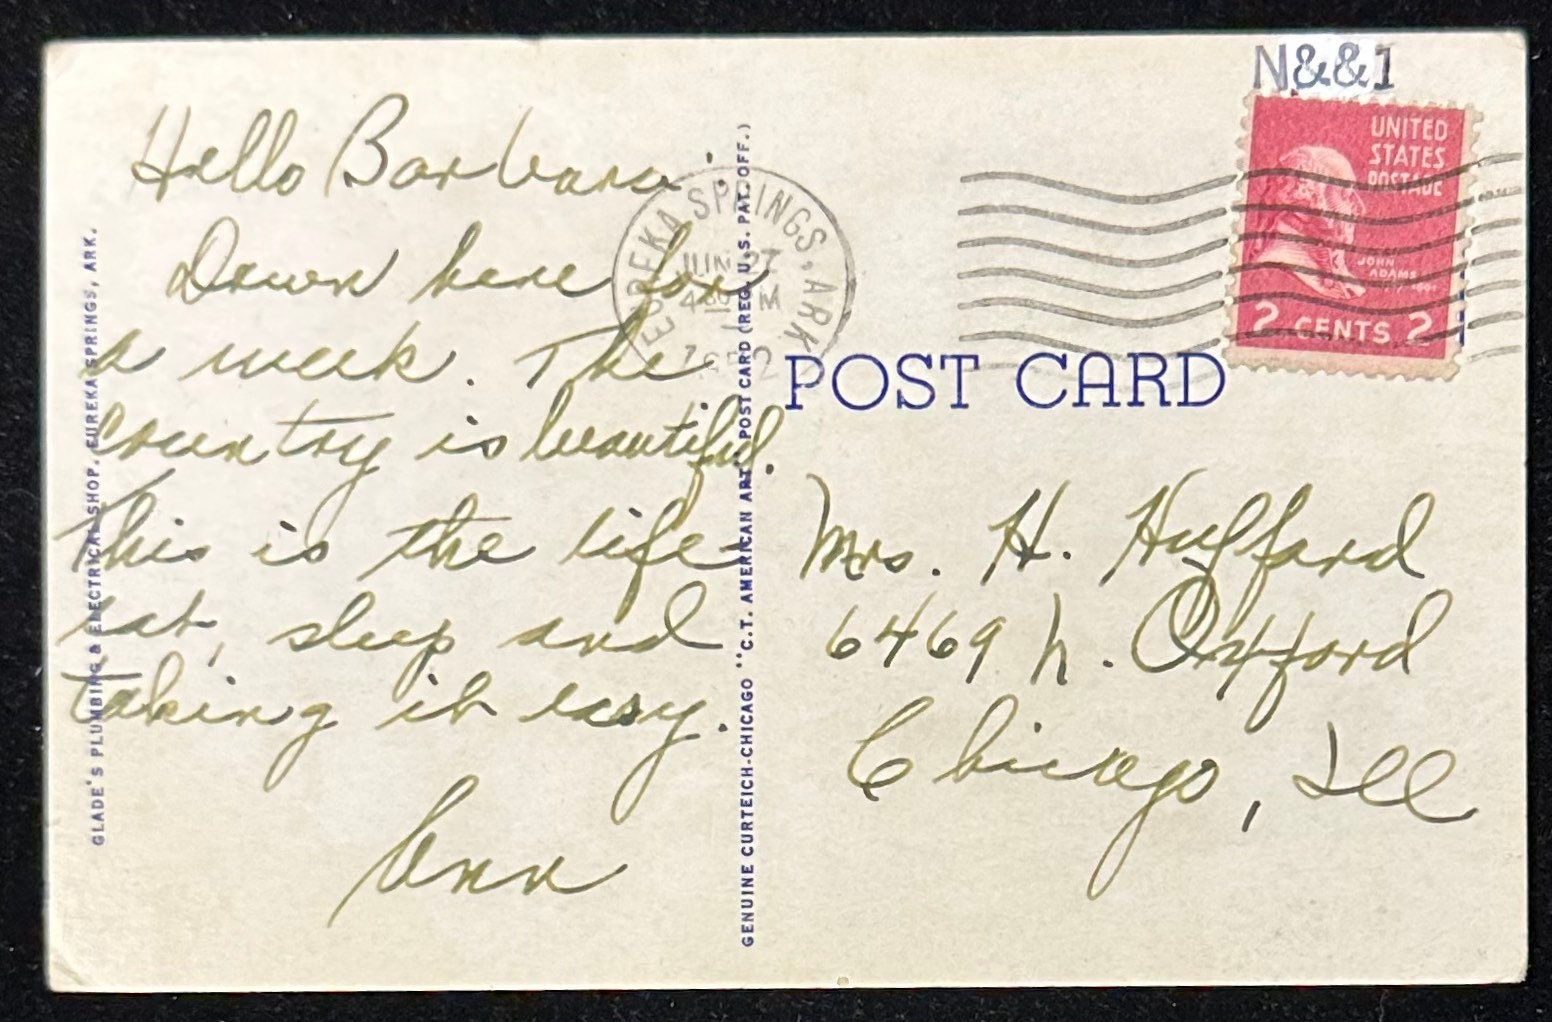 Hello Barbara:
Down here for
a week. The
country is beautiful.
This is the life
eat, sleep and
taking it easy.
Ann
GLADE'S PLUMBING & ELECTRICAL SHOP. EUREKA SPRINGS, ARK.
GENUINE CURTEICH-CHICAGO "C.T. AMERICAN ART" POST CARD (REG. U.S. PAT. OFF.)
EUREKA SPRINGS, ARK
JUN 27
4 30 PM
1952
N&&1
UNITED
STATES
POSTAGE
JOHN
ADAMS
2 CENTS 2
POST CARD
Mrs. H. Hufford
6469 N. Oxford
Chicago, Ill